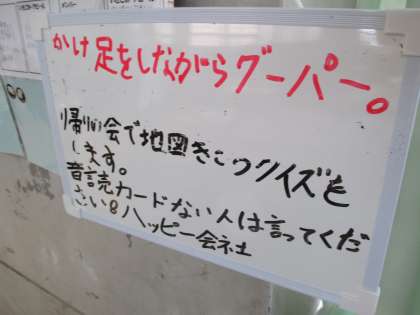 かけ足をしながらグーパー。
帰りの会で地図きごうクイズを
します。
音読カードない人は言ってくだ
さい8ハッピー会社